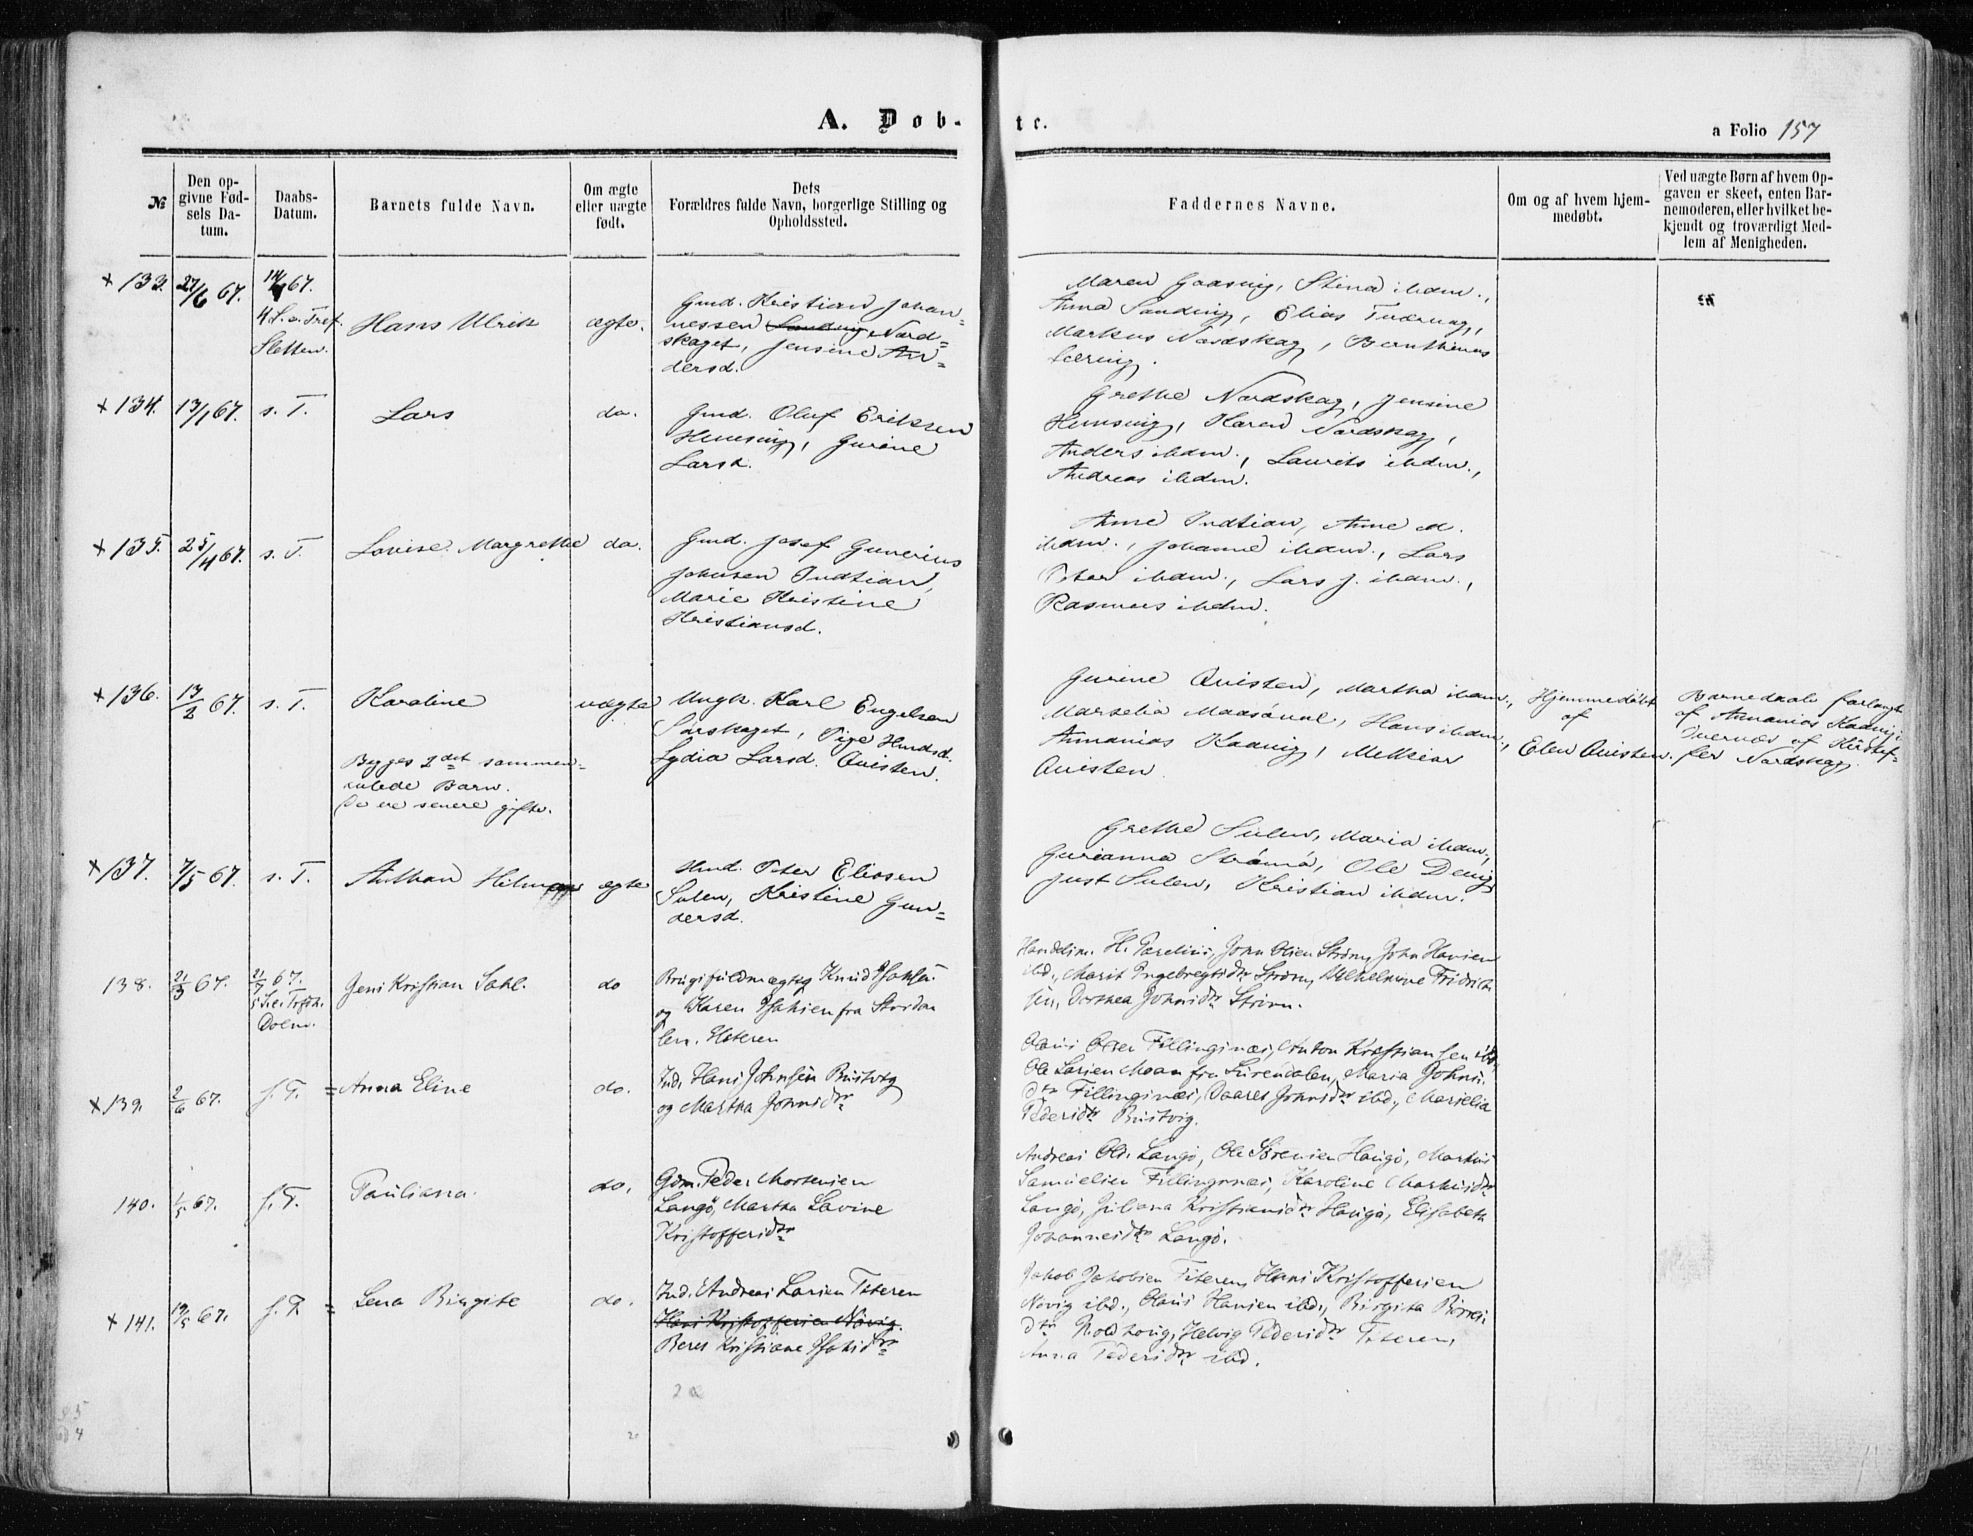 A. Døb-
te.
a Folio 157
№
Den op-
givne Fød-
sels Da-
tum.
Daabs-
Datum.
Barnets fulde Navn.
Om ægte
eller uægte
født.
Dets
Forældres fulde Navn, borgerlige Stilling og
Opholdssted.
Faddernes Navne.
Om og af hvem hjem-
medøbt.
Ved uægte Børn af hvem Op-
gaven er skeet, enten Bar-
nemoderen, eller hvilket be-
kjendt og troværdigt Med-
lem af Menigheden.
+133.
27/6 67.
14/ 67.
4 S. e. Tref.
Sletten.
Hans Ulrik
ægte.
Gmd. Kristian Johan-
nessen Nord=
skaget, Jensine An=
dersd.
Maren Gaasvig, Stina ibdm.,
Anna Sandvig, Elias
Markus Nordskag, Bernthinus
+134.
13/1 67.
s. T.
Lars
do.
Gmd. Oluf Eriksen
Hemsing, Gurine
Larsd.
Grethe Nordskag, Jensine
Hemsing, Karen Nordskag,
Anders ibdm., Laurits ibdm.,
Andreas ibdm.
+135.
25/4 67.
s. T.
Lovise Margrethe
do.
Gmd. Josef Gunerius
Johnsen Indtian,
Marie Kristine
Kristiansd.
Anne Indtian, Anne M.
ibdm., Johanna ibdm., Lars
Peter ibdm., Lars J. ibdm.,
Rasmus ibdm.
+136.
13/2 67.
s. T.
Karoline
uægte
Ungk. Karl Engelsen
Sørskaget, Pige Hmdsd.
Lydia Larsd. Qvisten.
Begges 2det sammen-
avlede Barn.
De ere senere gifte.
Gurine Qvisten, Martha ibdm.,
Marselia Maasøval, Hans ibdm.,
Annanias Kadvig, Melkior
Qvisten.
Hjemmedøbt
af
Elen Qvisten.
Barnedaab forlangt
af Annanias Kadvig.
af Kristof-
fer Nordskag.
+137.
7/5 67.
s. T.
Anthon Hilmar
ægte
Hmd. Peter Eliasen
Sulen, Kristine Gun=
dersd.
Grethe Sulen, Maria ibdm.,
Gurianna Strømø, Ole Dervig
Just Sulen, Kristian ibdm.
138.
21/3 67.
21/7 67.
5 S. e. Trefdh.
Dolm.
Jens Kristian Dahl.
do
Brugsfuldmægtig Knud
og Karen Isaksen fra Stordal
len. Hateren
Handelsm. H. Parelius, John Olsen Strøm, John Hansen
ibd., Marit Ingebregtsdtr Strøm, Wilhelmine Fridrich
sen, Dorthea Johnsdtr Strøm.
+139.
2/6 67.
s. T.
=Anna Eline
do.
Ind. Hans Johnsen Bustvig
og Martha Johnsdtr
Olaus Olsen Fillingsnæs, Anton Kristiansen ibd.,
Ole Larsen Moan fra Surendalen, Maria Johns-
dtr Fillingsnæs, Daaret Johnsdtr ibd., Marselia
Pedersdtr Bustvig.
140.
1/5 67.
s. T.
Pauliana.
do.
Gdm. Peder Mortensen
Langø, Martha Lovine
Kristoffersdtr
Andreas Ols. Langø, Ole Sørensen Haugø, Markus
Samuelsen Fillingsnæs, Karoline Markusdtr
Langø, Juliana Kristiansdtr Haugø, Elisabeth
Johannesdtr Langø.
+141.
19/5 67.
s. T.
= Lena Birgite
do.
Ind. Andreas Larsen Teteren
Hans Kristoffersen Novig.
Beret Kristiane Isaksdtr
Jakob Jakobsen Teteren, Hans Kristoffersen
Novig ibd., Olaus Hansen ibd., Birgita Børres-
dtr Noldhoug, Helvig Pedersdtr Teteren,
Anna Pedersdtr ibd.